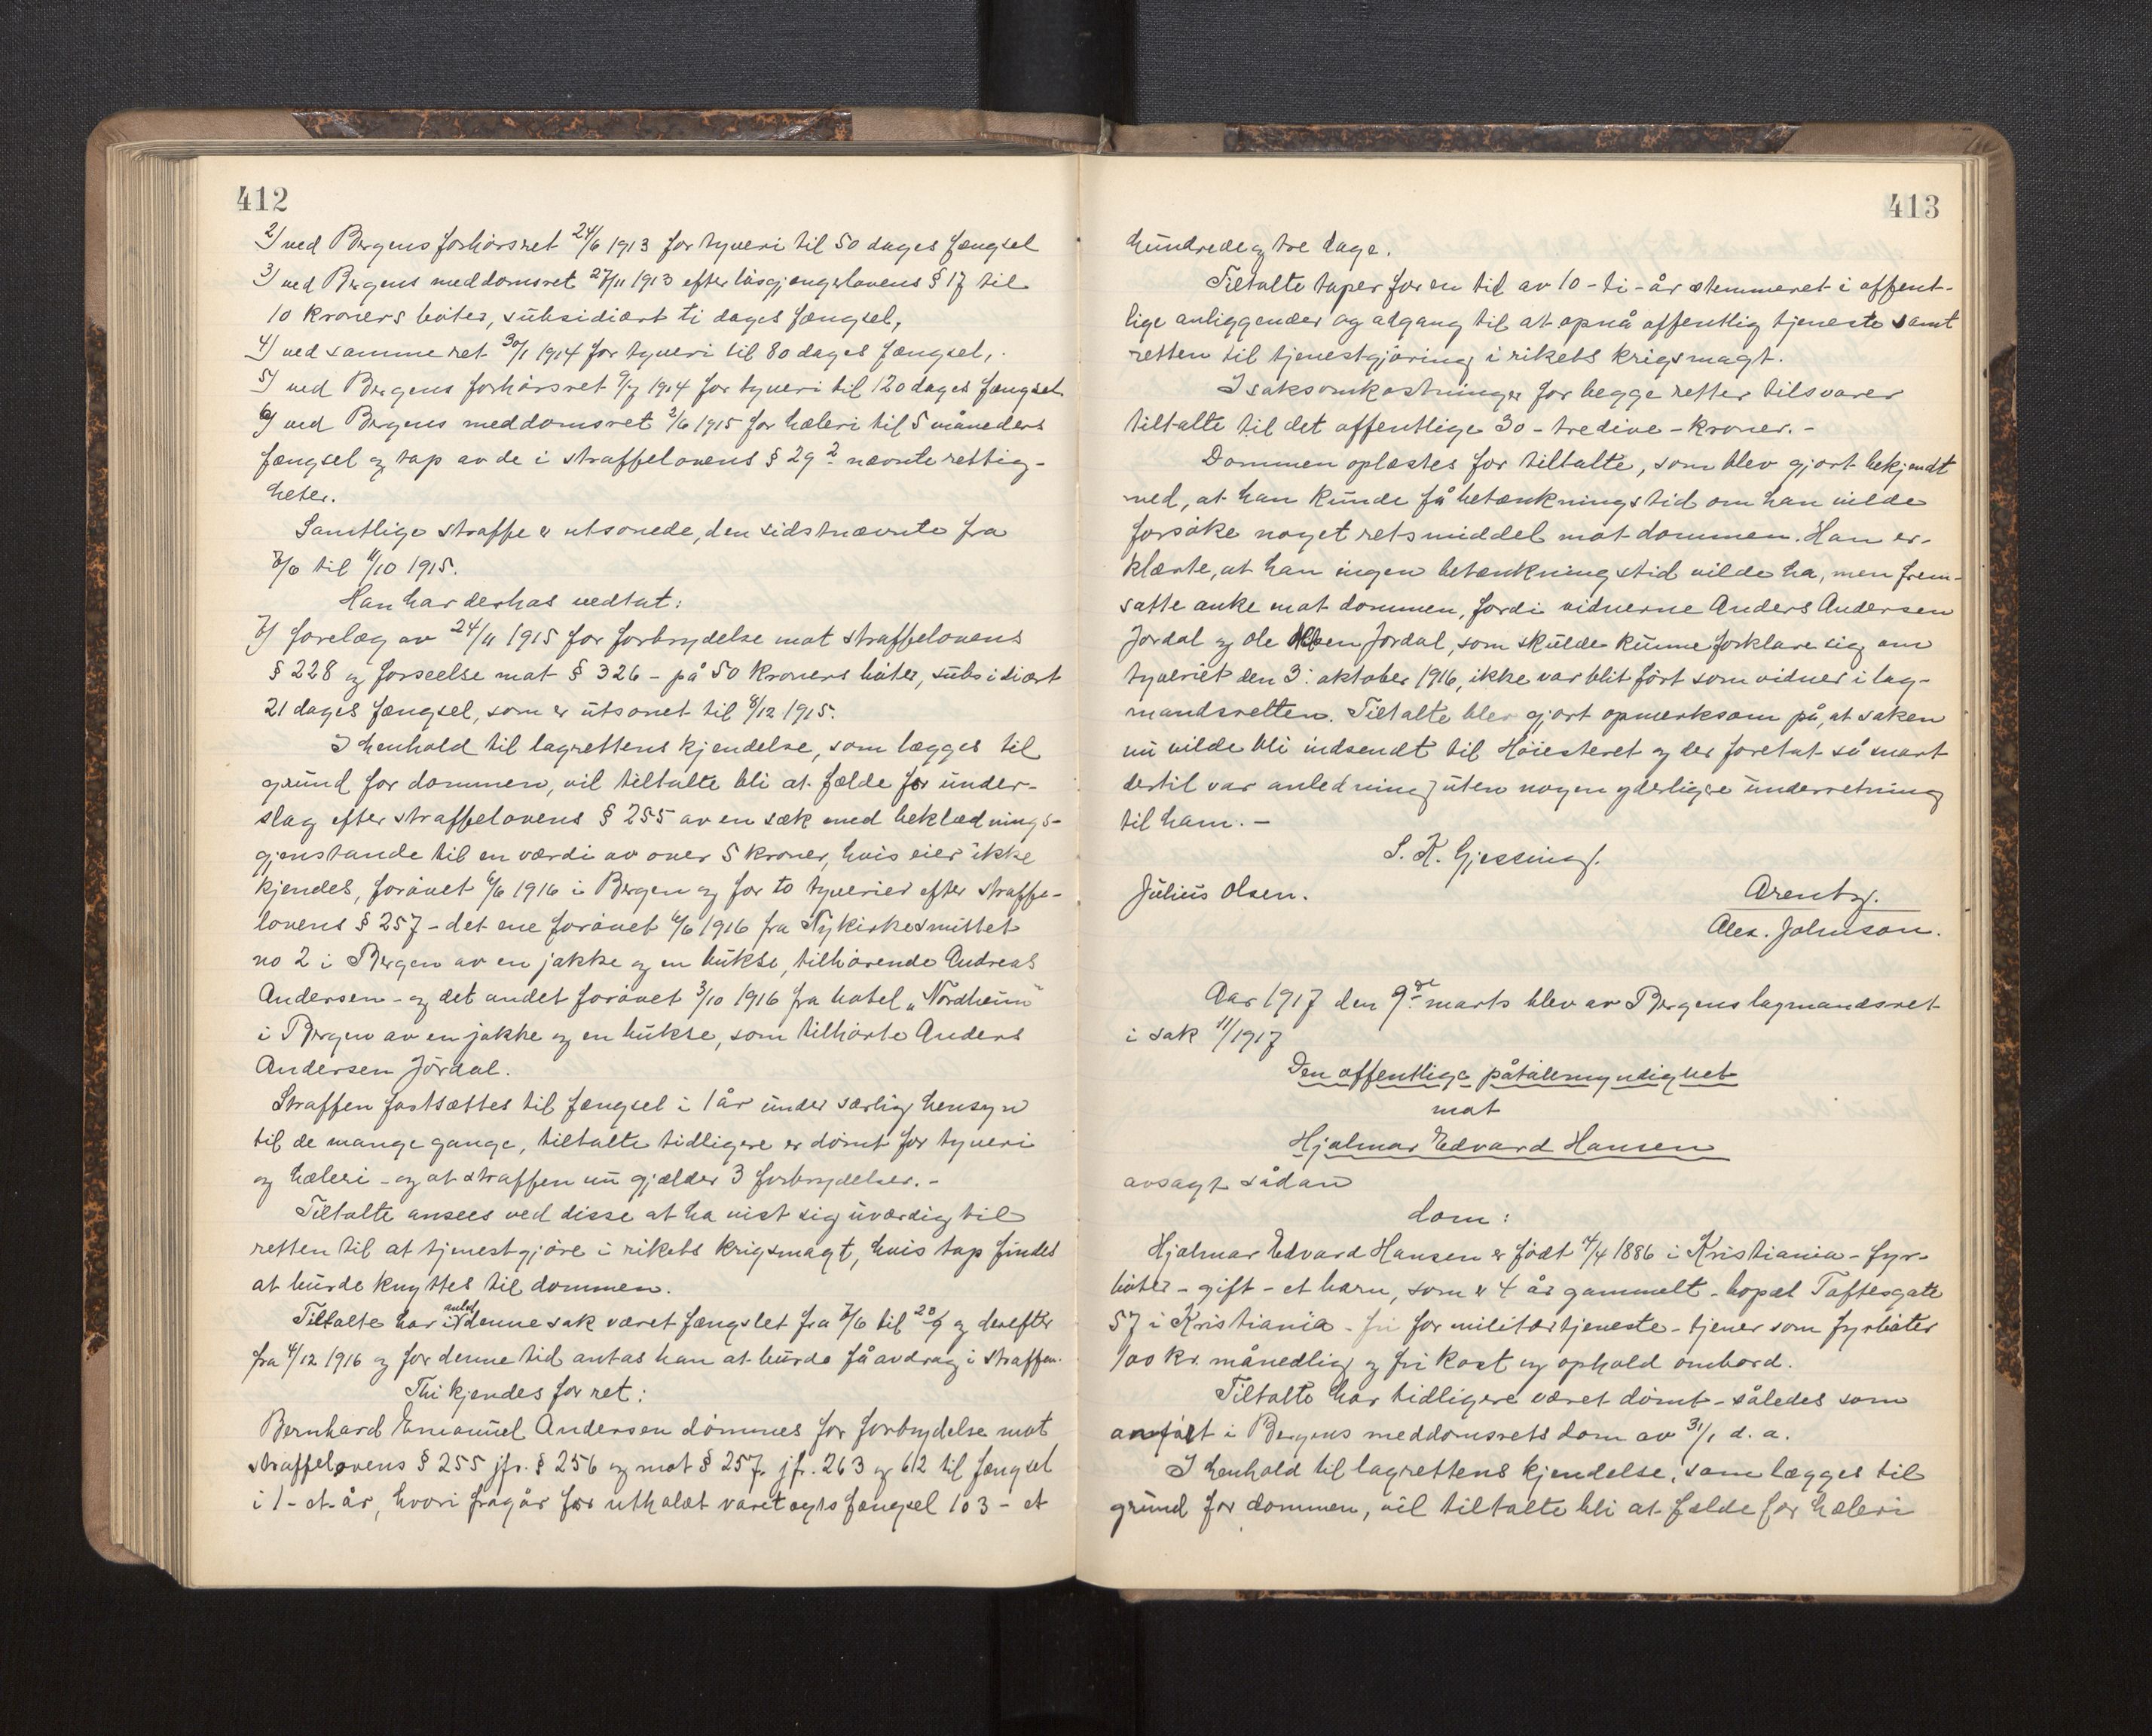 412
2) ved Bergens forhörsret 24/6 1913 for tyveri til 50 dages fængsel
3) ved Bergens meddomsret 27/11 1913 efter løsgjængerlovens § 17 til
10 kroners böter, subsidiært ti dages fængsel,
4) ved samme ret 30/1 1914 for tyveri til 80 dages fængsel,
5) ved Bergens forhörsret 9/7 1914 for tyveri til 120 dages fængsel
6) ved Bergens meddomsret 2/6 1915 for hæleri til 5 måneders
fængsel og tap av de i straffelovens § 29 2 nævnte rettig-
heter.
Samtlige straffe er utsonede, den sidstnævnte fra
7/6 til 11/10 1915.
Han har derhos vedtat:
7) forelæg av 24/11 1915 for forbrydelse mot straffelovens
§ 228 og forseelse mot § 326 - på 50 kroners böter, subsidiært
21 dages fængsel, som er utsonet til 8/12 1915.
I henhold til lagrettens kjendelse, som lægges til
grund for dommen, vil tiltalte bli at fælde for under-
slag efter straffelovens § 255 av en sæk med beklædnings-
gjenstande til en værdi av over 5 kroner, hvis eier ikke
kjendes, forövet 6/6 1916 i Bergen og for to tyverier efter straffe-
lovens § 257 - det ene forövet 6/6 1916 fra Nykirkesmuttet
no 2 i Bergen av en jakke og en bukse, tilhörende Andreas
Andersen - og det andet forövet 3/10 1916 fra hotel "Nordheim"
i Bergen av en jakke og en bukse, som tilhörte Anders
Andersen Jordal.
Straffen fastsættes til fængsel i 1 år under særlig hensyn
til de mange gange, tiltalte tidligere er dömt for tyveri
og hæleri - og at straffen nu gjælder 3 forbrydelser. -
Tiltalte ansees ved disse at ha vist sig uværdig til
retten til at tjenestgjöre i rikets krigsmagt, hvis tap findes
at burde knyttes til dommen.
Tiltalte har i anled denne sak været fængslet fra 7/6 til 20/9 og derefter
fra 4/12 1916 og for denne tid antas han at burde få avdrag i straffen.
Thi kjendes for ret:
Bernhard Emanuel Andersen dömmes for forbrydelse mot
straffelovens § 255 jfr. § 256 og mot § 257, jfr. 263 og 62 til fængsel
i 1 - et år, hvori fragår for utholdt varetægts fængsel 103 - et
413
hundrede og tre dage.
Tiltalte taper for en tid av 10 - ti - år stemmeret i offent-
lige anliggender og adgang til at opnå offentlig tjeneste samt
retten til tjenestgjöring i rikets krigsmagt.
I saksomkostninger for begge retter tilsvarer
tiltalte til det offentlige 30 - tredive - kroner. -
Dommen oplæstes for tiltalte, som blev gjort bekjendt
med, at han kunde få betænkningstid om han vilde
forsöke noget retsmiddel mot dommen. Han er-
klærte, at han ingen betænkningstid vilde ha, men frem-
satte anke mot dommen, fordi vidnerne Anders Andersen
Jordal og Ole Olsen Jordal, som skulde kunne forklare sig om
tyveriet den 3. oktober 1916, ikke var blit fört som vidner i lag-
mandsretten. Tiltalte blev gjort opmerksom på, at saken
nu vilde bli indsendt til Höiesteret og der foretat så snart
dertil var anledning uten nogen yderligere underretning
til ham. -
S. K. Gjessing.
Julius Olsen.
Arentz.
Alex. Johnson.
Aar 1917 den 9de marts blev av Bergens lagmandsret
i sak 11/1917
Den offentlige påtalemyndighet
mot
Hjalmar Edvard Hansen
avsagt sådan
dom:
Hjalmar Edvard Hansen er födt 14/4 1886 i Kristiania - fyr-
böter - gift - et barn, som er 4 år gammelt - bopæl Toftesgate
57 i Kristiania - fri for militærtjeneste - tjener som fyrböter
100 kr. månedlig og fri kost og ophold ombord.
Tiltalte har tidligere været dömt - således som
anfört i Bergens meddomsrets dom av 31/1 d. a.
I henhold til lagrettens kjendelse, som lægges til
grund for dommen, vil tiltalte bli at fælde for hæleri